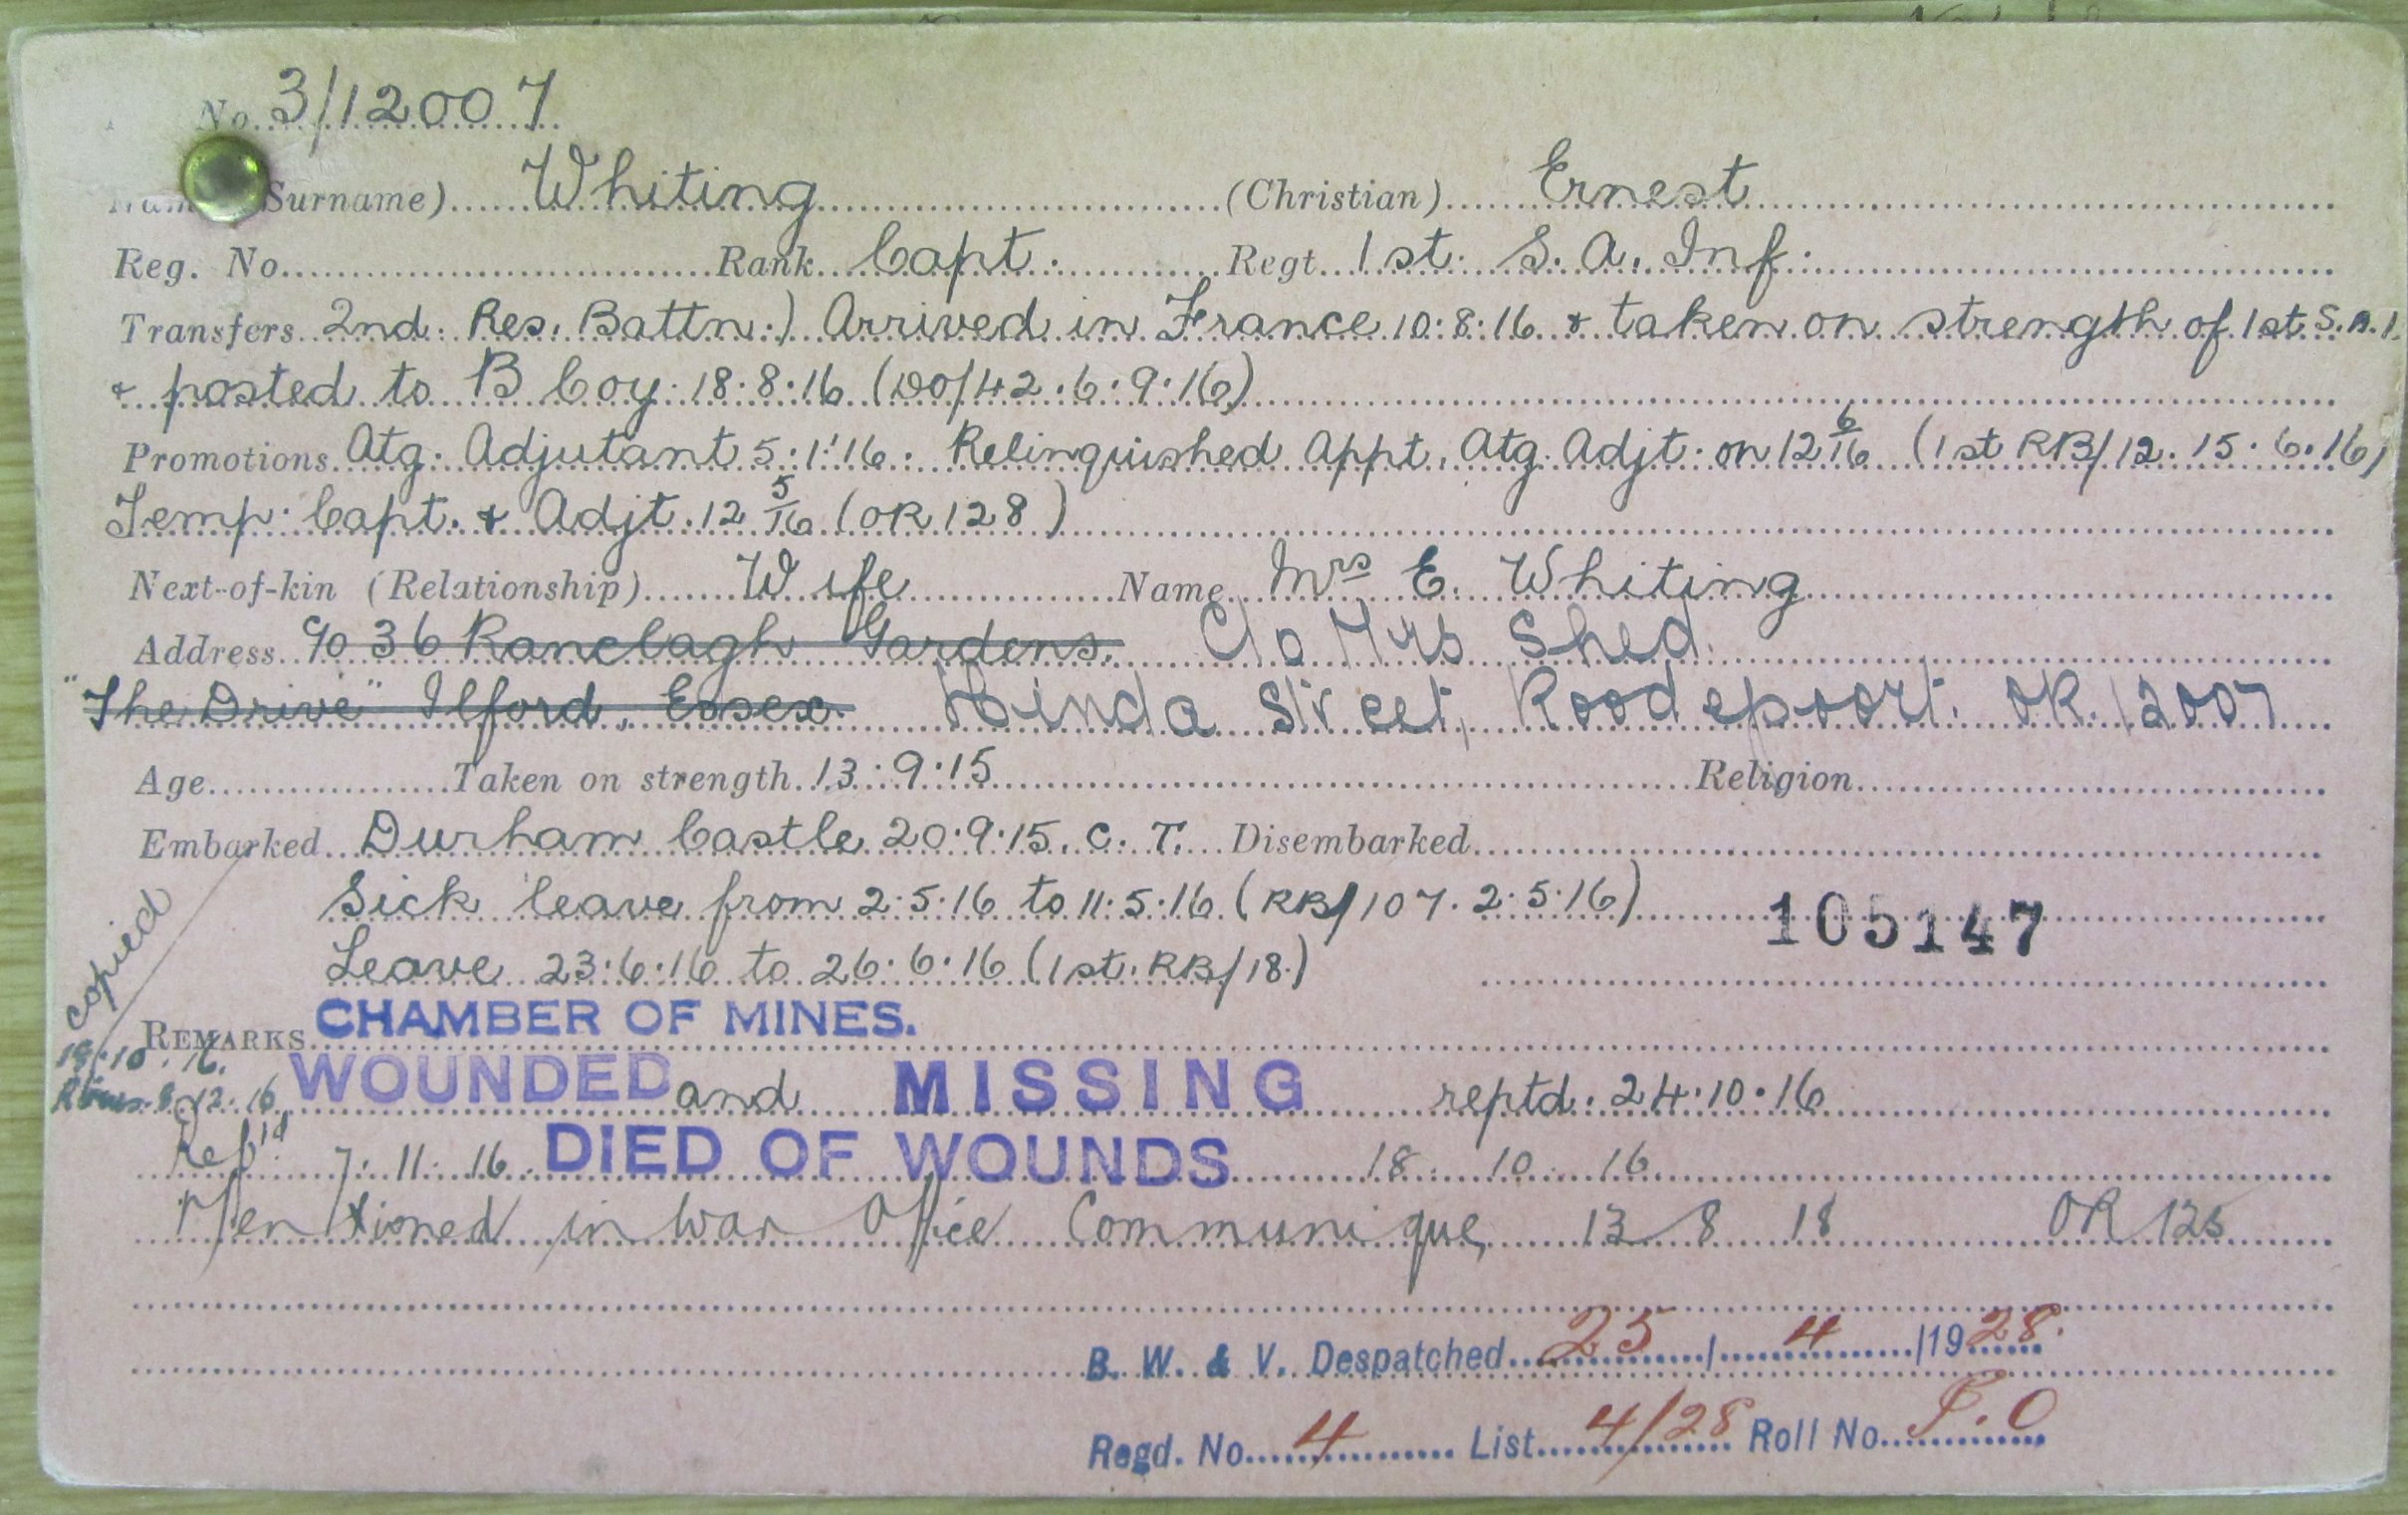 No. 3/12007
(Surname) Whiting (Christian) Ernest
Reg. No. Rank Capt. Regt. 1st. S. A. Inf.
Transfers 2nd. Res. Battn.) Arrived in France 10:8:16 & taken on strength of 1st. S.A.I.
& posted to B Coy. 18:8:16 (DO/42.6.9.16)
Promotions Atg. Adjutant 5:1:16. Relinquished Appt. Atg. Adjt. on 12 6/16 (1st RB/12. 15.6.16)
Temp. Capt. & Adjt. 12 5/16 (OR 128)
Next-of-kin (Relationship) Wife Name Mrs E. Whiting
Address c/o 36 Ranelagh Gardens. C/o Mrs Shed.
"The Drive" Ilford, Essex. Street, Roodepoort. OR 12007
Age Taken on strength 13:9:15 Religion
Embarked Durham Castle 20.9.15. C. T. Disembarked
Sick leave from 2.5.16 to 11.5.16 (RB/107. 2.5.16)
105147
Leave 23:6:16 to 26.6.16 (1st. RB/18.)
copied
REMARKS CHAMBER OF MINES.
18.10.16.
WOUNDED and MISSING reptd. 24.10.16
8.12.16
Repd 7.11.16 DIED OF WOUNDS 18.10.16.
Mentioned in War Office Communique, 13 8 18 OR 128
B. W. & V. Despatched 25/4/1928.
Regd. No. 4 List 4/28 Roll No. S.O